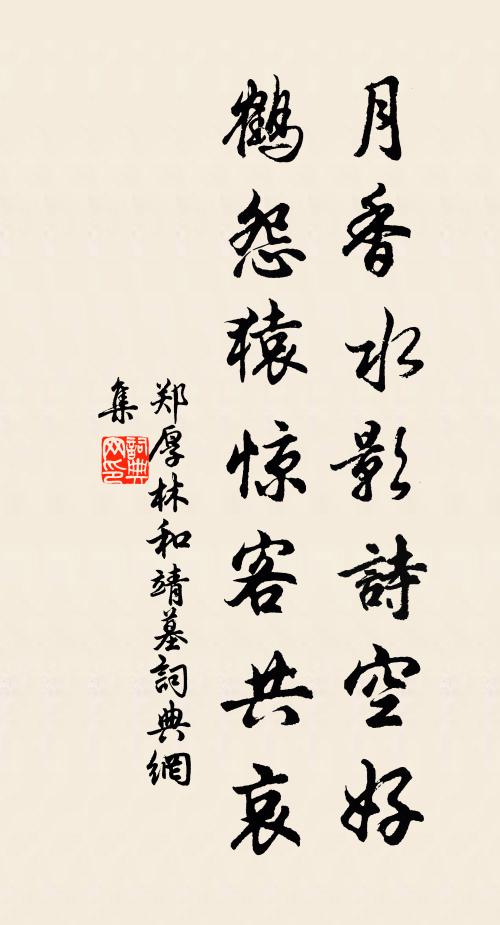 月香水影詩空好
鶴怨猿惊客共哀
郑厚林和靖墓詞典網
集
詞典
网印